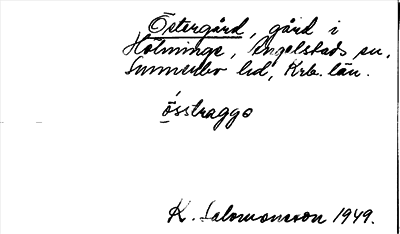 Östergård, gård i
Holminge, Ängelstads sn,
Sunnerbo hd, Krb. län.
ö́sstraggo
K. Salomonsson 1949.